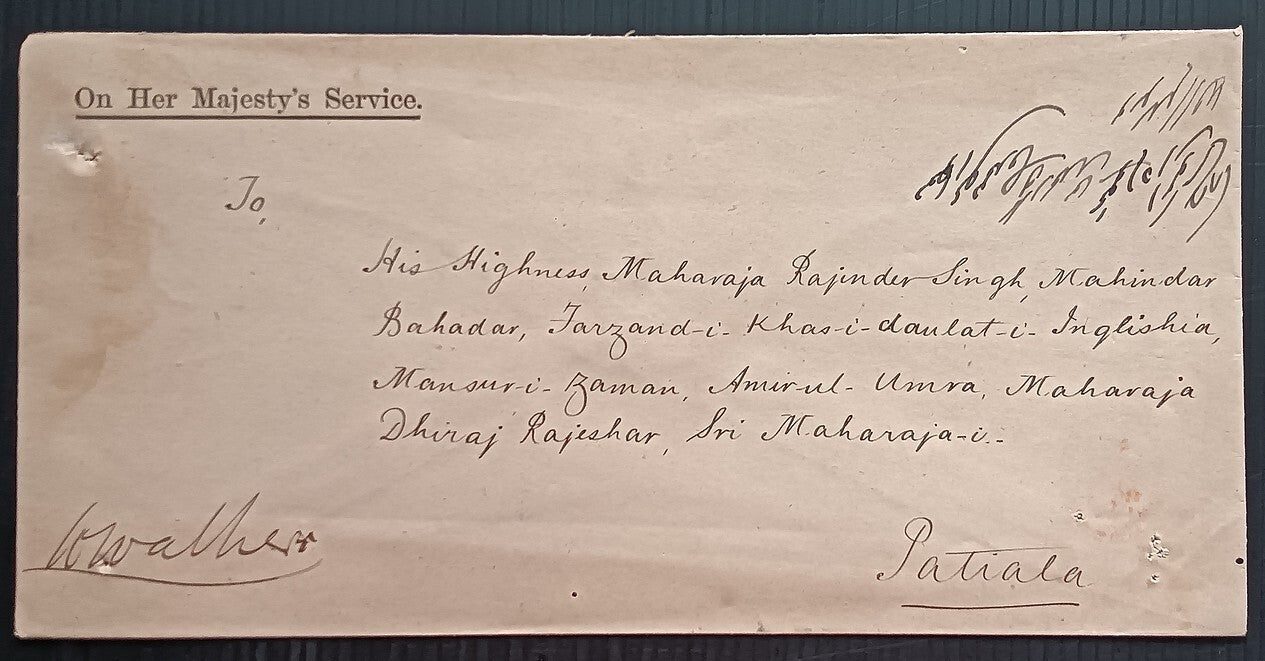 On Her Majesty's Service.
To,
His Highness, Maharaja Rajinder Singh, Mahindar
Bahadar, Farzand-i-Khas-i-daulat-i-Inglishia,
Mansur-i-Zaman, Amir-ul-Umra, Maharaja
Dhiraj Rajeshar, Sri Maharaja-i-
Patiala